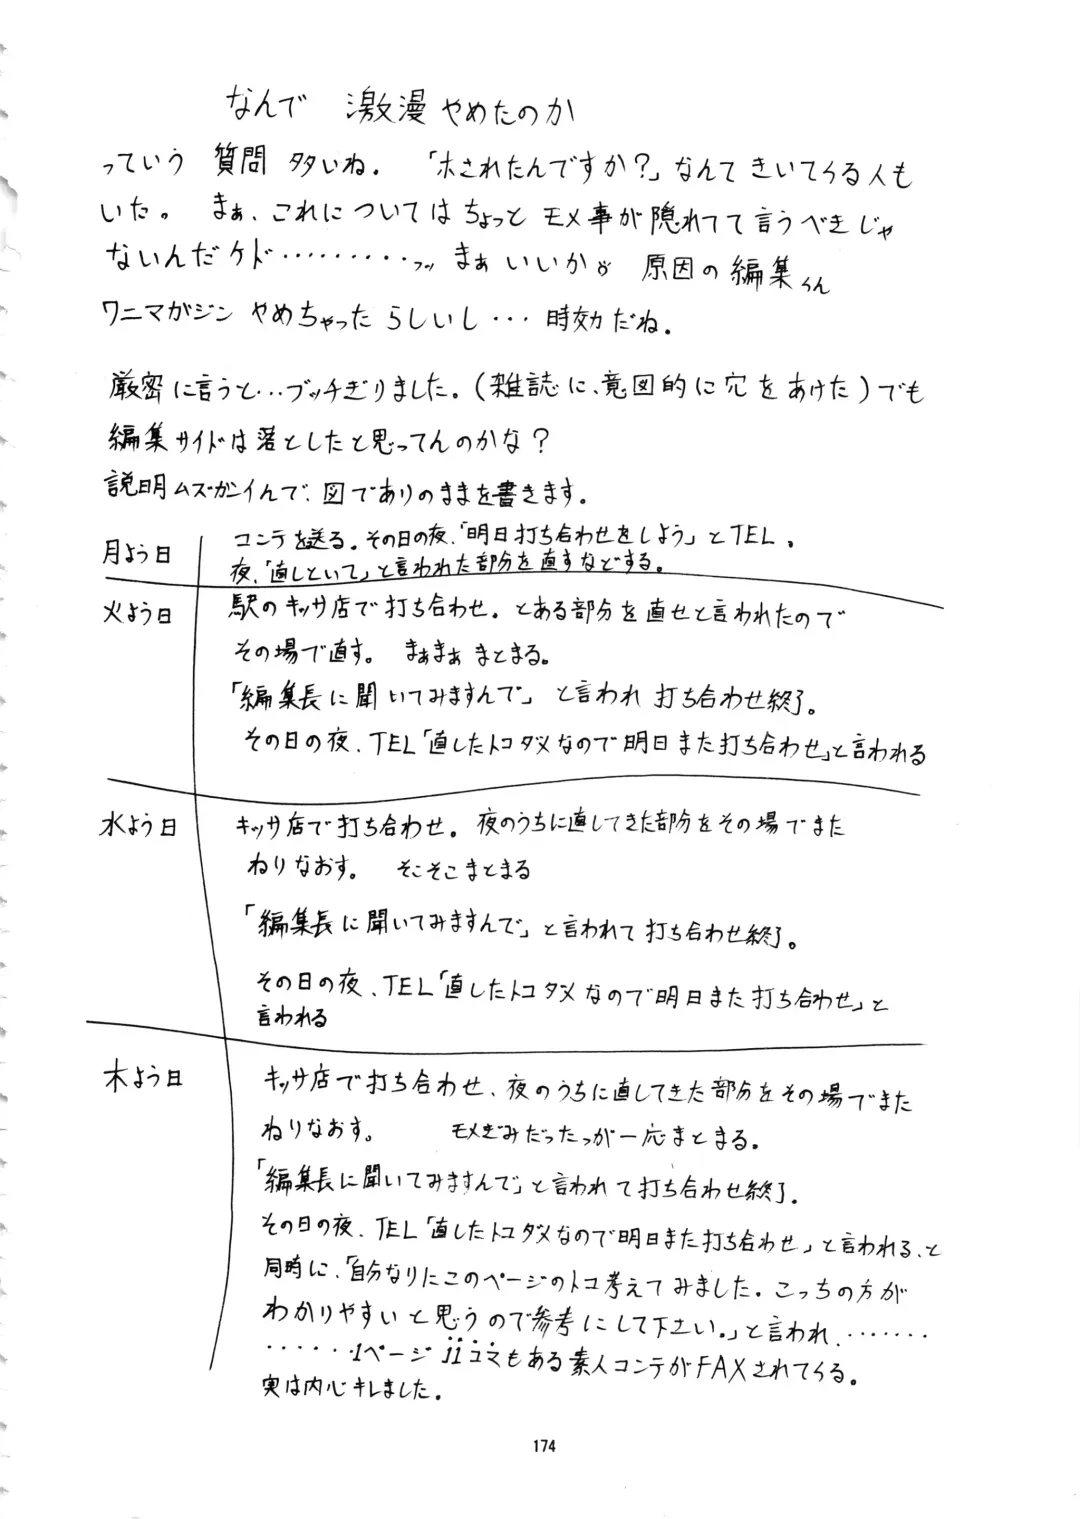 なんで 激漫やめたのか
っていう 質問 多いね. 「ホされたんですか?」なんてきいてくる人も
いた。 まぁ、これについてはちょっと モメ事が隠れてて言うべきじゃ
ないんだケド・・・・・・・・・フッ まぁいいか 原因の編集くん
ワニマガジン やめちゃった らしいし・・・ 時効だね.
厳密に言うと…ブッチぎりました。(雑誌に、意図的に穴をあけた)でも
編集サイドは落としたと思ってんのかな?
説明ムズカシイんで、図でありのままを書きます.
月よう日
コンテを送る. その日の夜.「明日打ち合わせをしよう」とTEL.
夜、「直しといて」と言われた部分を直すなどする。
火よう日
駅のキッサ店で打ち合わせ. とある部分を直せと言われたので
その場で直す。 まぁまぁ まとまる。
「編集長に聞いてみますんで」 と言われ 打ち合わせ終了。
その日の夜、TEL「直したトコダメなので明日また打ち合わせ」と言われる
水よう日
キッサ店で打ち合わせ. 夜のうちに直してきた部分をその場でまた
ねりなおす。 そこそこまとまる
「編集長に聞いてみますんで」と言われて打ち合わせ終了。
その日の夜、TEL「直したトコダメなので明日また打ち合わせ」と
言われる
木よう日
キッサ店で打ち合わせ、夜のうちに直してきた部分をその場でまた
ねりなおす。 モメぎみだったっが一応まとまる.
「編集長に聞いてみますんで」と言われて打ち合わせ終了.
その日の夜、TEL「直したトコダメなので明日また打ち合わせ」と言われる、と
同時に、「自分なりにこのページのトコ考えてみました. こっちの方が
わかりやすいと思うので参考にして下さい。」と言われ.・・・・・・・
・・・・・・1ページ 11コマもある素人コンテがFAXされてくる。
実は内心キレました.
174